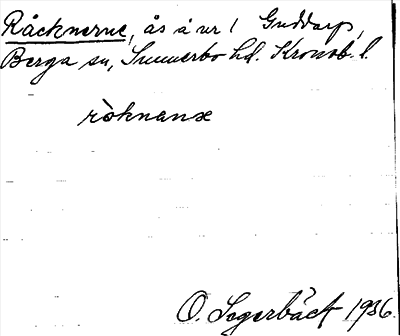 Råcknerne, ås å nr 1 Guddarp,
Berga sn, Sunnerbo hd. Kronob. l.
ròknanæ
O. Segerbäck 1936.